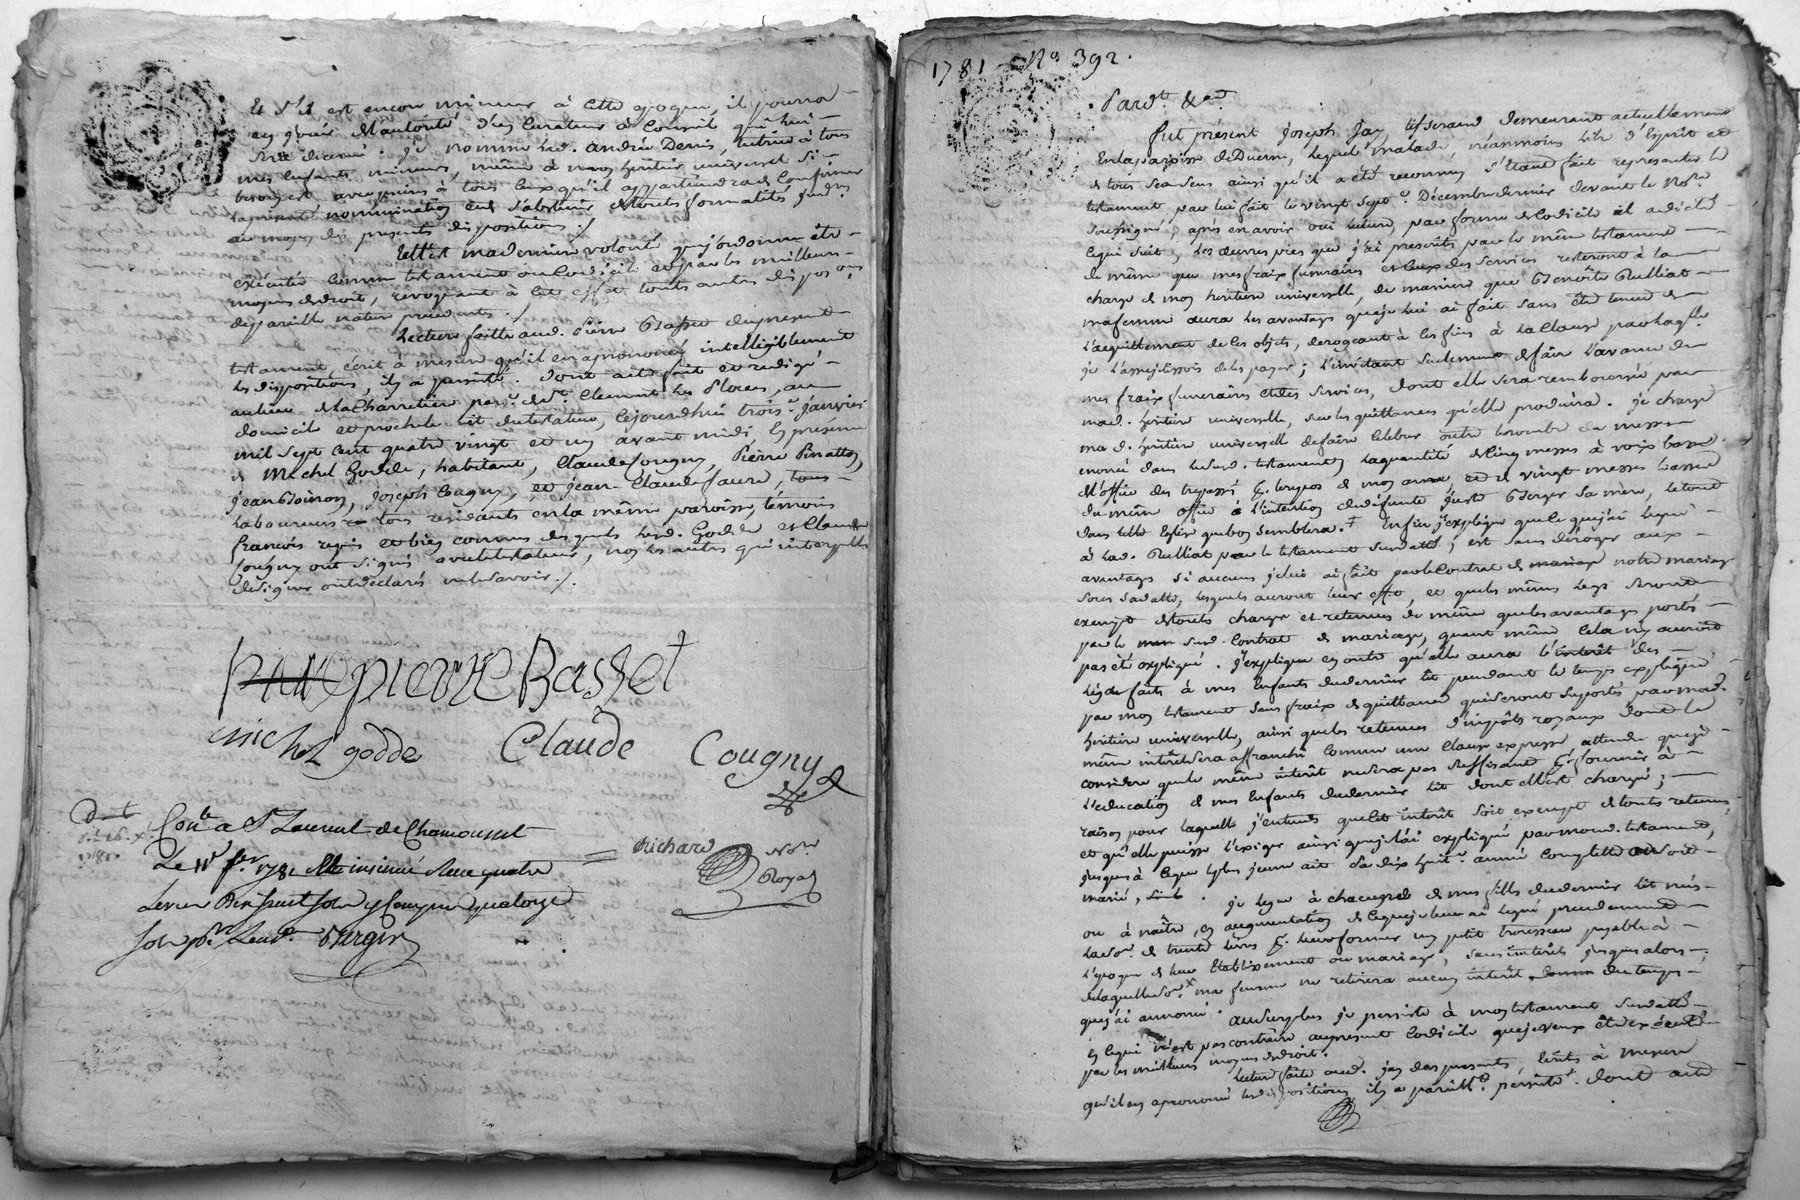 Et s'il est encore mineur à cette époque, il pourra
en jouir de l'autorité d'un Curateur à Conseil qui lui
sera décerné. Je nomme led. andré Denis, tuteur à tous
mes enfants mineurs, même à mon héritier universel si
besoin est avec prière à tous ceux qu'il appartiendra de Confirmer
la présente nommination et de s'abstenir de toutes formalités
au moyen des présentes dispositions ./
telle est ma dernière volonté que j'ordonne être
éxécutée comme testament ou Codicile et par les meilleurs
moyens de droit, revoquant à cet effet toutes autres
de pareille nature précédentes ./
Lecture faitte aud. Pierre Basset du présent
testament, écrit à mesure qu'il en a prononcé intelligiblement
les dispositions, il y a persisté. dont acte fait et redigé
au lieu de la Charretier par. de St. Clement les places, au
domicile et proche le lit du testateur, cejourdhui trois. janvier
mil sept cent quatre vingt et un avant midi En présence
de Michel Godde, habitant, Claude Cougny, Pierre
jean Boinon, joseph Cougny, et jean Claude faure, tous
laboureurs tous résidants en la même paroisse, témoins
françois requis et bien connus desquels led. Godde et Claude
Cougny ont signé avec le testateur, non les autres qui interpellés
de signer ont déclarés ne le savoir ./.
pierre Basset
michel godde Claude Cougny
Con.le a St Laurent de Chamousset
Le 11 f.er 1781
richard
No.re
Royal
1781 No 392.
Pard.t &a.
fut présent joseph Jay, tisserand demeurant actuellement
En la paroisse de Duerne, lequel malade, néanmoins libre d'Esprit et
de tous ses sens ainsi qu'il a été reconnu s'étant fait représenter le
testament par lui fait le vingt sept. Décembre dernier devant le No.re
soussigné, après en avoir oui lecture, par forme de Codicile il a dicté
ce qui suit, Les œuvres pies que j'ai prescrites par le même testament
de même que mes fraix funeraires et ceux des services resteront à la
charge de mon héritière universelle, de manière que Benoite Rulliat
ma femme aura les avantages que je lui ai fait sans être tenue de
l'acquittement de ces objets, derogeant à ces fins à la Clause par laq.le
je l'assujetissois de les payer; l'invitant seulement de faire l'avance de
mes fraix funeraires et des services, dont elle sera remboursée par
mad. heritiere universelle, sur les quittances qu'elle produira. je charge
ma d. heritiere universelle de faire célébrer outre le nombre de messes
enoncé dans led. testament, la quantité de cinq messes à voix basse
de l'office des trepassés pr. le repos de mon ame et de vingt messes basses
du même office à l'intention de défunte Berger sa mère, le tout
dans telle Eglise que bon semblera. Enfin j'explique que ce que j'ai legué
à lad. Rulliat par le testament susdatté, est sans déroger aux
avantages si aucuns je lui ai fait par le Contrat de mariage notre mariage
sous sa datte, lesquels auront leur effet, et que les mêmes legs seront
exempt de toutes charges et retenues de même que les avantages portés
par le sud. Contrat de mariage, quand même cela n'y auroit
pas été expliqué. j'explique en outre qu'elle aura l'interêt des
legs faits à mes Enfants du dernier lit pendant le temps expliqué
par mon testament sans fraix de quittance qui seront suportés par mad.
heritière universelle, ainsi que les retenues d'impôts royaux dont le
même intérêt sera affranchi comme une Clause expresse attendu que je
considère que le même intérêt ne sera pas suffisant pr. fournir à
l'education de mes Enfants du dernier lit dont elle est chargée;
raison pour laquelle j'entends que cet intérêt soit exempt de toutes retenues,
et qu'elle puisse l'exiger ainsi que je l'ai expliqué par mond. testament,
jusques à ce que le plus jeune ait sa dix huit. année complette ou soit
marié, je legue à chacune de mes filles du dernier lit nées
ou à naître, en augmentation de ce que je leur ai legué precedemment
la so. de trente livres pr. leur former un petit trousseau payable à
l'epoque de leur Etablissement ou mariage, sans intérêts jusques alors,
de laquelle so. ma femme ne retirera aucun intérêt du temps
que j'ai annoncé. au surplus je persiste à mon testament susdatté
en ce qui n'est pas contraire au present Codicile que je veux être éxécuté
par les meilleurs moyens de droit.
Lecture faite aud. jay des presentes, Ecrits à mesure
qu'il en a prononcé les dispositions, il y a persisté. dont acte